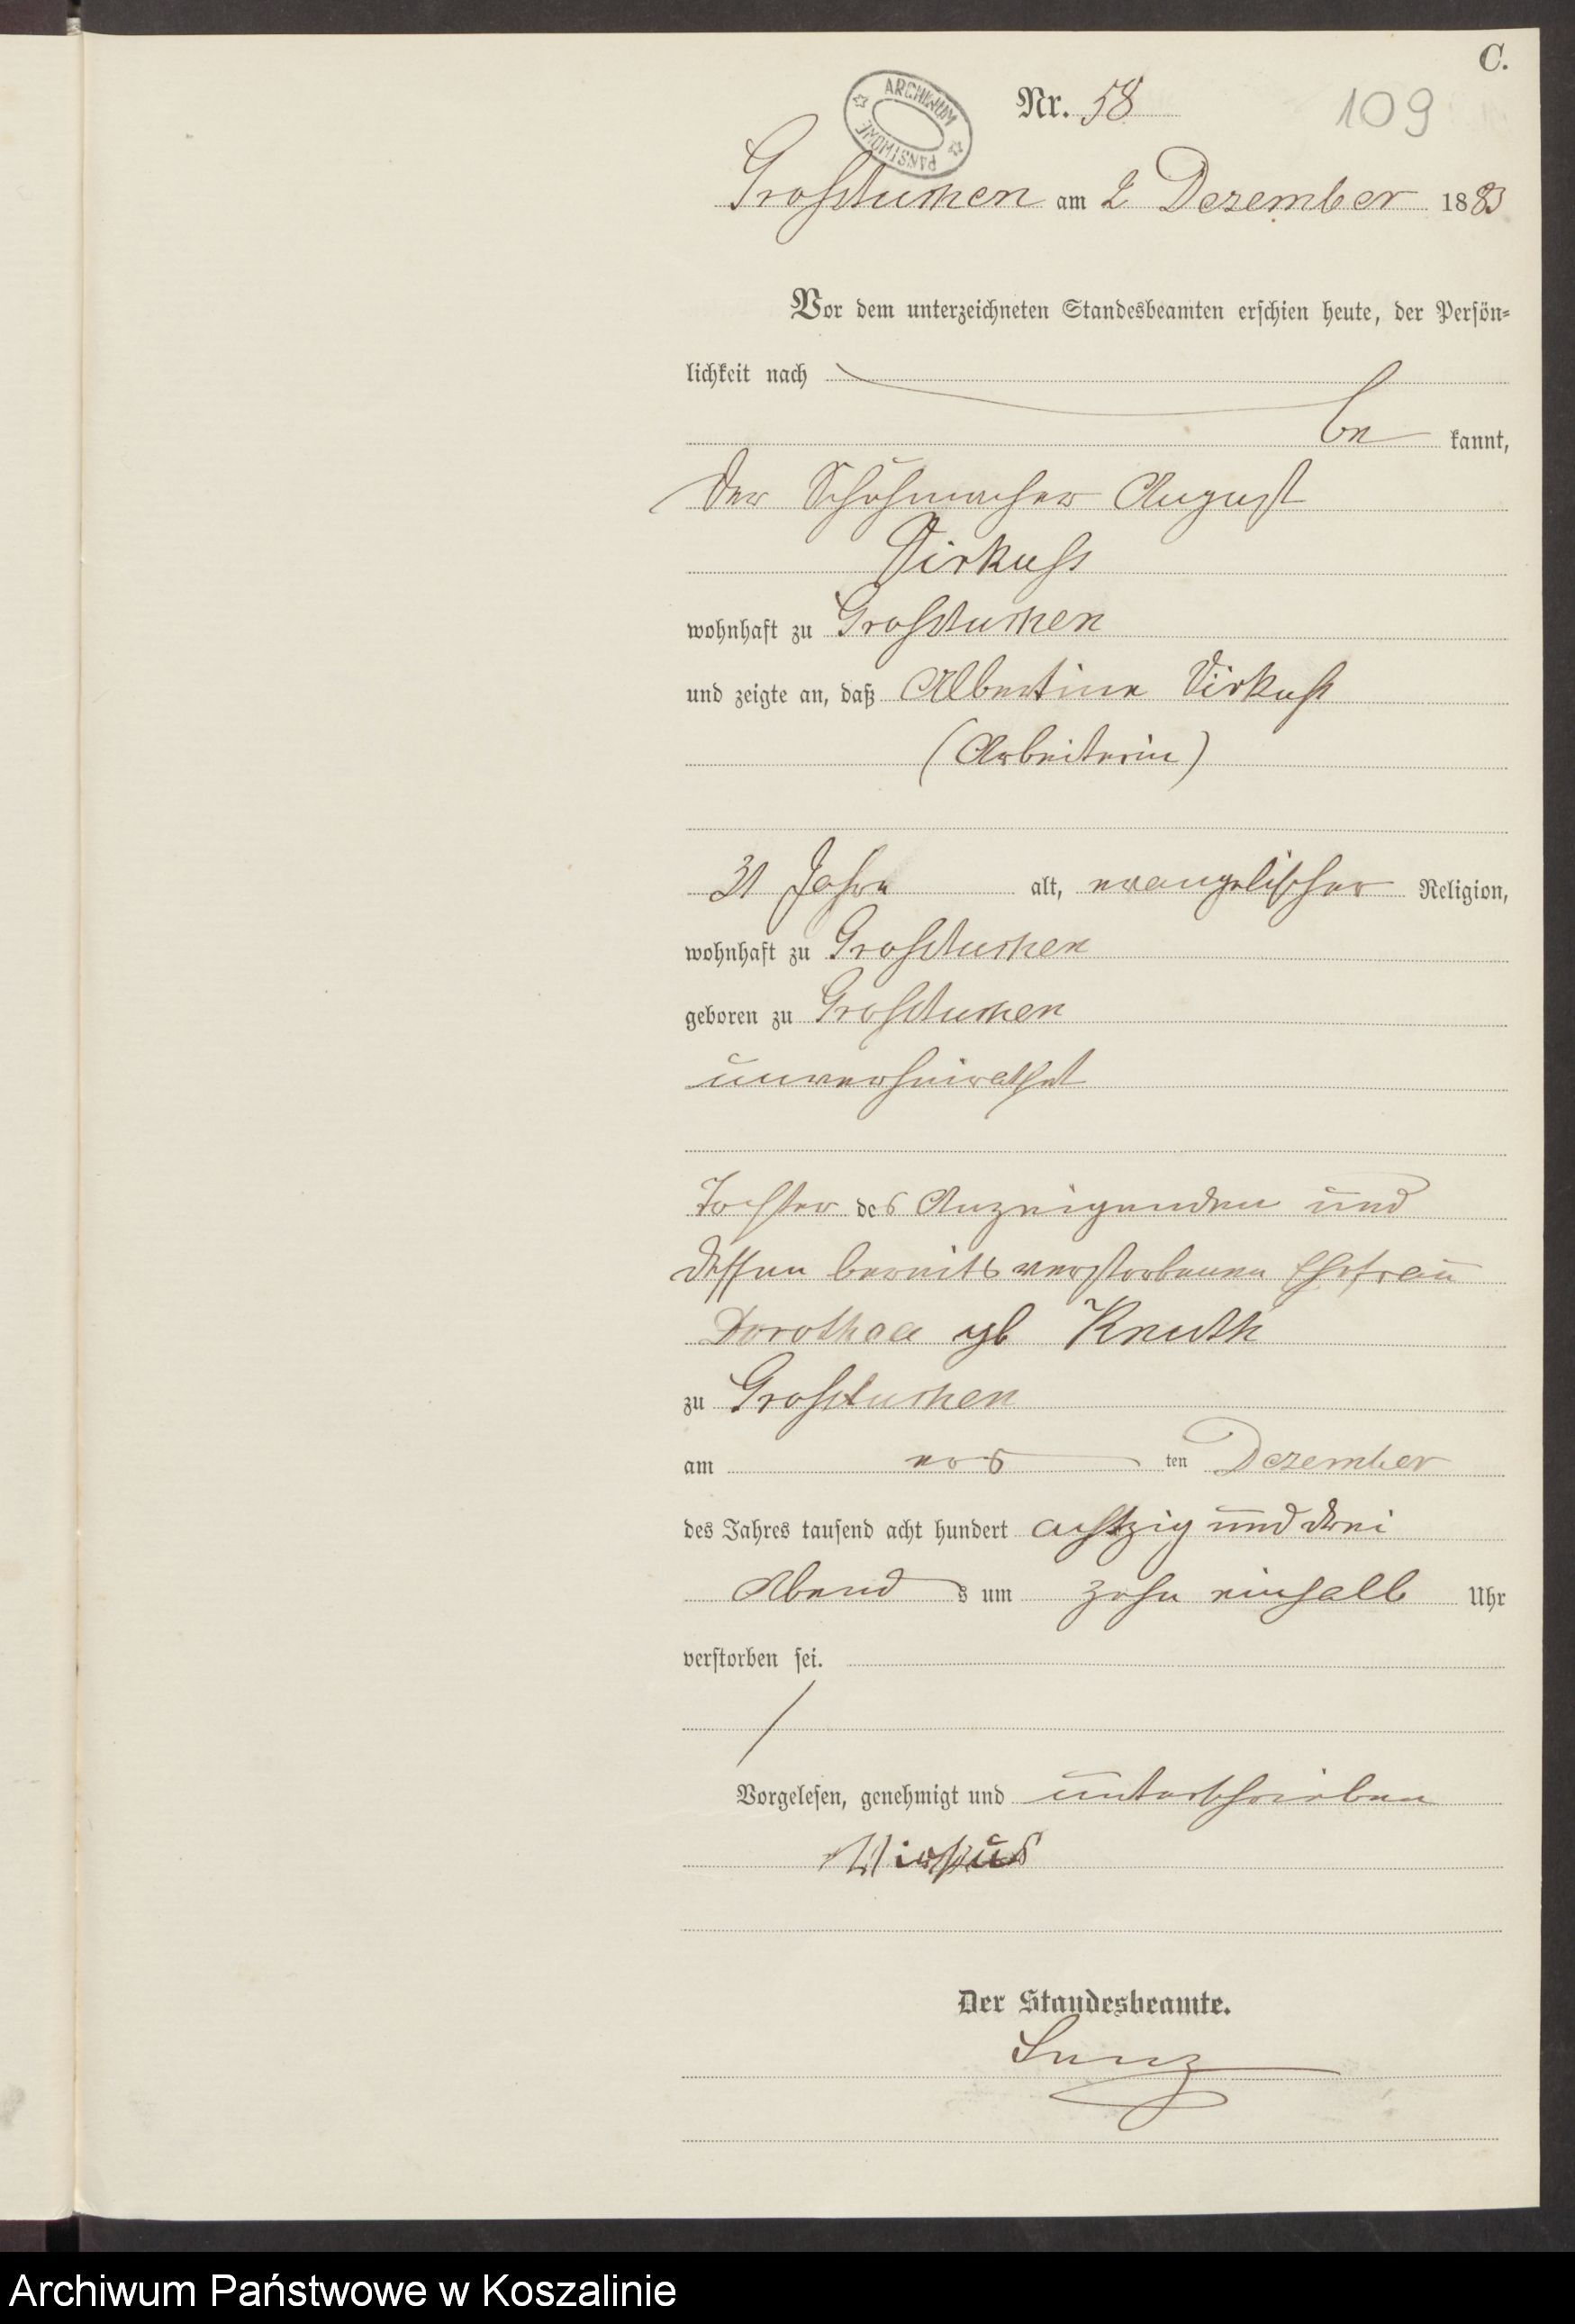 C.
Nr. 58
109
ARCHIWUM PAŃSTWOWE
Grosstuchen am 2 Dezember 1883
Vor dem unterzeichneten Standesbeamten erschien heute, der Persön-
lichkeit nach
be kannt,
der Schuhmacher August
Virkuss
wohnhaft zu Grosstuchen
und zeigte an, daß Albertine Virkuss
(Arbeiterin)
31 Jahre alt, evangelischer Religion,
wohnhaft zu Grosstuchen
geboren zu Grosstuchen
unverheirathet
Tochter des Anzeigenden und
dessen bereits verstorbenen Ehefrau
Dorothea geb Knuth
zu Grosstuchen
am ten Dezember
des Jahres tausend acht hundert achtzig und drei
Abend s um zehn einhalb Uhr
verstorben sei.
Vorgelesen, genehmigt und unterschrieben
Wirkus
Der Standesbeamte.
Archiwum Państwowe w Koszalinie